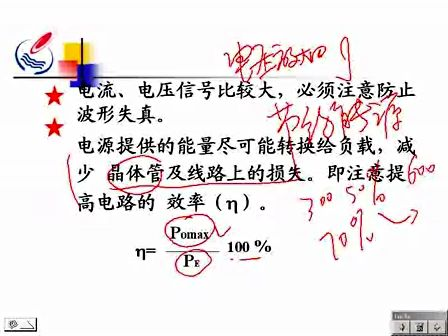 电压放大
电流、电压信号比较大，必须注意防止
波形失真。
节约能源
电源提供的能量尽可能转换给负载，减
少 晶体管及线路上的损失。即注意提
600
高电路的 效率（η）。
300 50%
70%
η= Pomax / PE 100 %